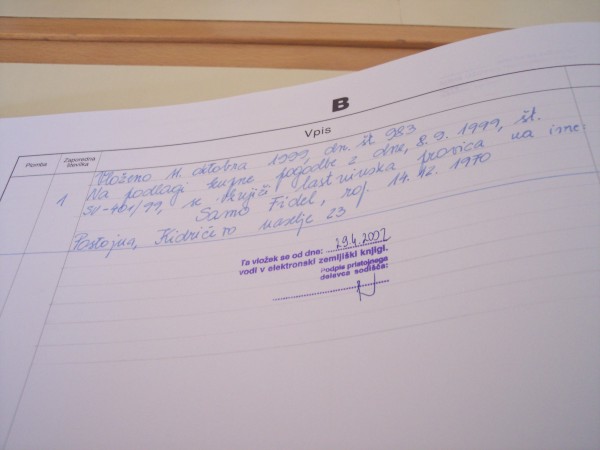 B
Vpis
Plomba
Zaporedna številka
1
Vloženo 11. oktobra 1999, dn. št. 983
Na podlagi kupne pogodbe z dne, 8. 9. 1999, št.
SV-461/99, se vknjiži lastninska pravica na ime:
Samo Fidel, roj. 14. 12. 1970
Postojna, Kidričevo naselje 23
Ta vložek se od dne: 29.4.2002
vodi v elektronski zemljiški knjigi.
Podpis pristojnega
delavca sodišča: